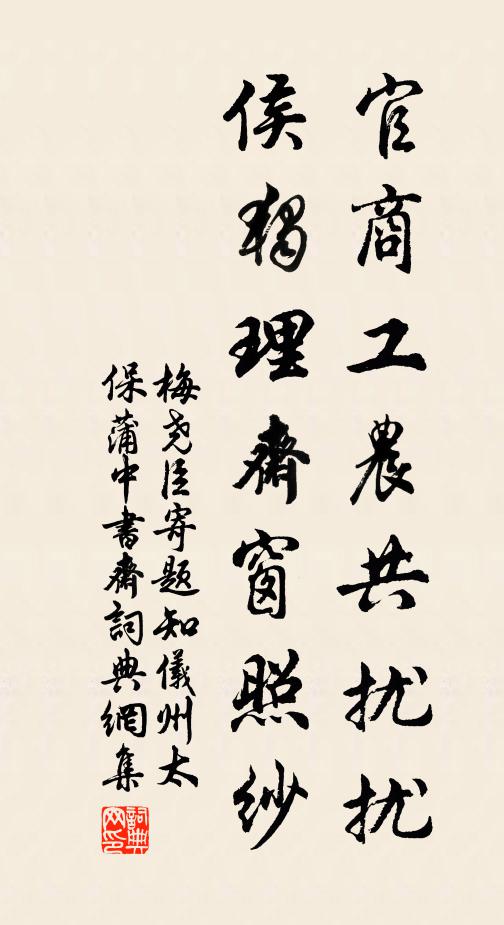 官商工農共扰扰
侯獨理齋窗照紗
梅尧臣寄題知儀州太
保蒲中書齋詞典網集
詞典网印